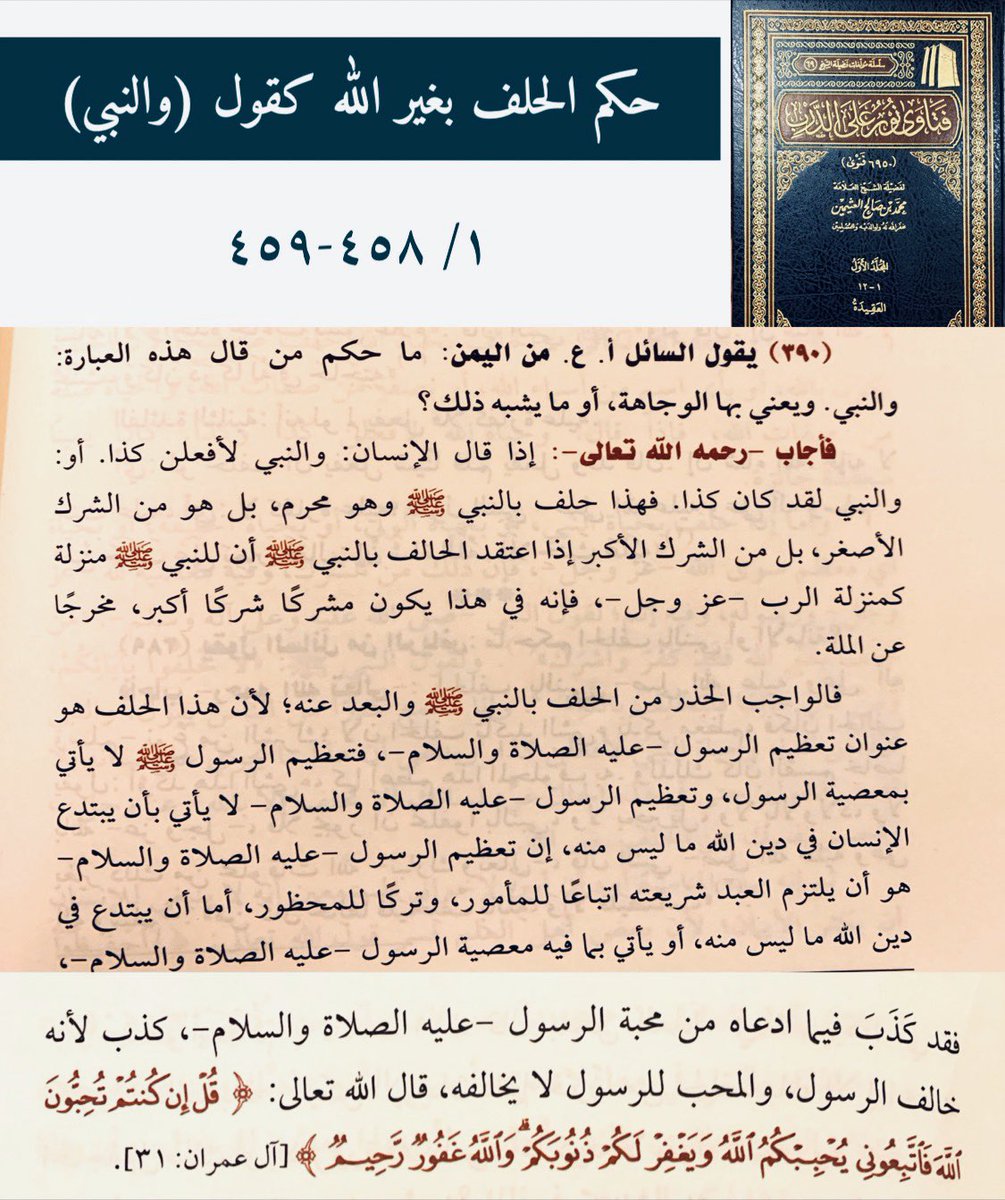 حكم الحلف بغير الله كقول (والنبي)
١/ ٤٥٨-٤٥٩
فتاوى نور على الدرب
(٦٩٥٠ فتوى)
لفضيلة الشيخ العلامة
محمد بن صالح العثيمين
غفر الله له ولوالديه وللمسلمين
المجلد الأول
١-١٢
العقيدة
(٣٩٠) يقول السائل أ. ع. من اليمن: ما حكم من قال هذه العبارة:
والنبي. ويعني بها الوجاهة، أو ما يشبه ذلك؟
فأجاب -رحمه الله تعالى-: إذا قال الإنسان: والنبي لأفعلن كذا. أو:
والنبي لقد كان كذا. فهذا حلف بالنبي ﷺ وهو محرم، بل هو من الشرك
الأصغر، بل من الشرك الأكبر إذا اعتقد الحالف بالنبي ﷺ أن للنبي ﷺ منزلة
كمنزلة الرب -عز وجل-، فإنه في هذا يكون مشركًا شركًا أكبر، مخرجًا
عن الملة.
فالواجب الحذر من الحلف بالنبي ﷺ والبعد عنه؛ لأن هذا الحلف هو
عنوان تعظيم الرسول -عليه الصلاة والسلام-، فتعظيم الرسول ﷺ لا يأتي
بمعصية الرسول، وتعظيم الرسول -عليه الصلاة والسلام- لا يأتي بأن يبتدع
الإنسان في دين الله ما ليس منه، إن تعظيم الرسول -عليه الصلاة والسلام-
هو أن يلتزم العبد شريعته اتباعًا للمأمور، وتركًا للمحظور، أما أن يبتدع في
دين الله ما ليس منه، أو يأتي بما فيه معصية الرسول -عليه الصلاة والسلام-،
فقد كَذَبَ فيما ادعاه من محبة الرسول -عليه الصلاة والسلام-، كذب لأنه
خالف الرسول، والمحب للرسول لا يخالفه، قال الله تعالى: ﴿قُلْ إِن كُنتُمْ تُحِبُّونَ
اللَّهَ فَاتَّبِعُونِي يُحْبِبْكُمُ اللَّهُ وَيَغْفِرْ لَكُمْ ذُنُوبَكُمْ ۗ وَاللَّهُ غَفُورٌ رَّحِيمٌ﴾ [آل عمران: ٣١].